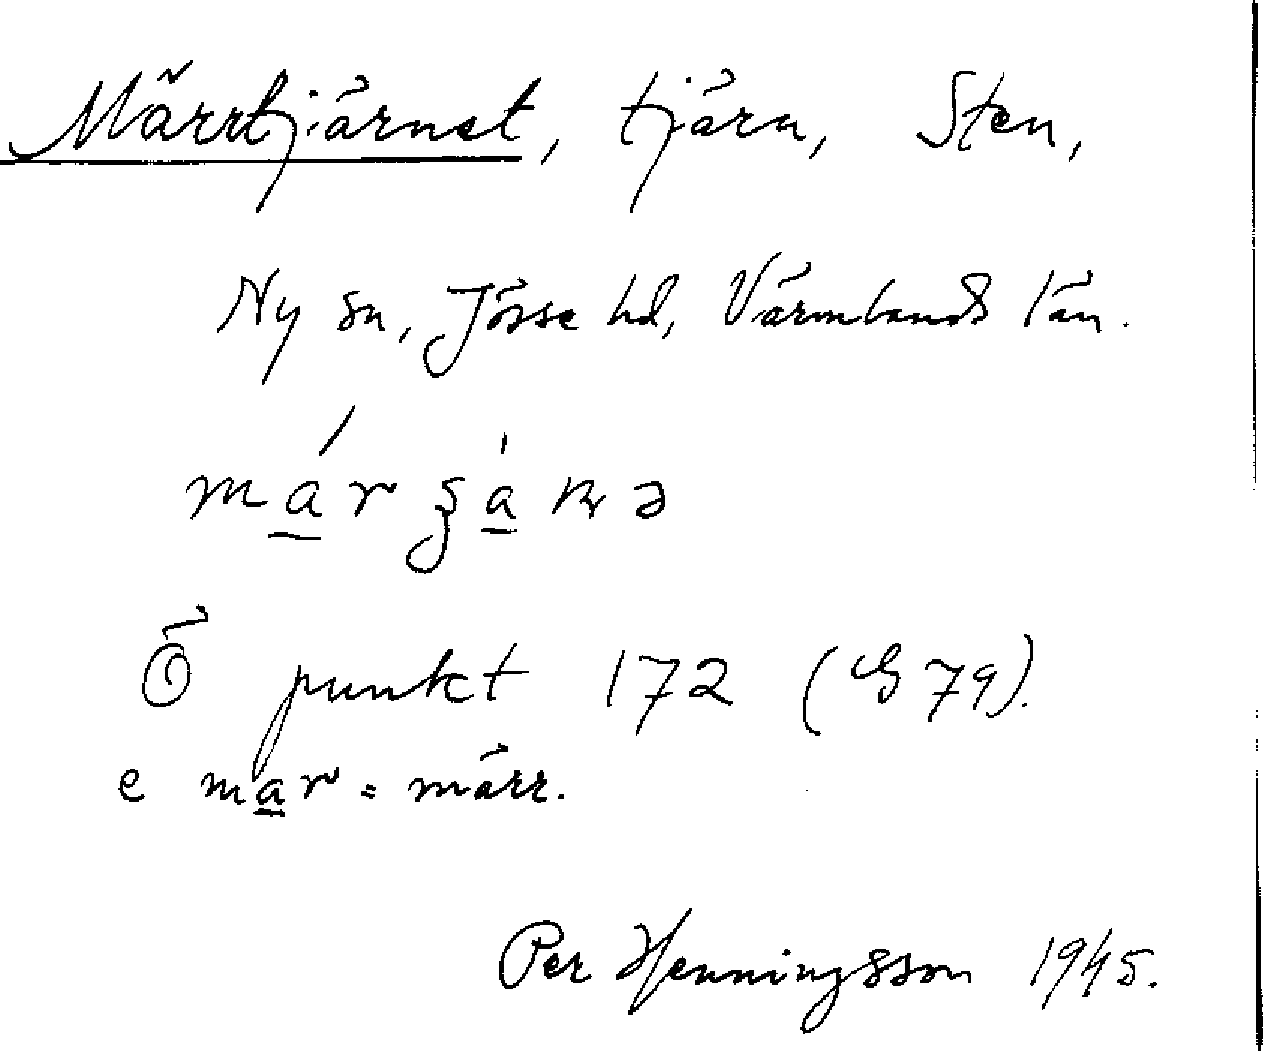 Märrtjärnet, tjärn, Sten,
Ny sn, Jösse hd, Värmlands län.
Ö punkt 172 (G 79).
e mar = märr.
Per Henningsson 1945.